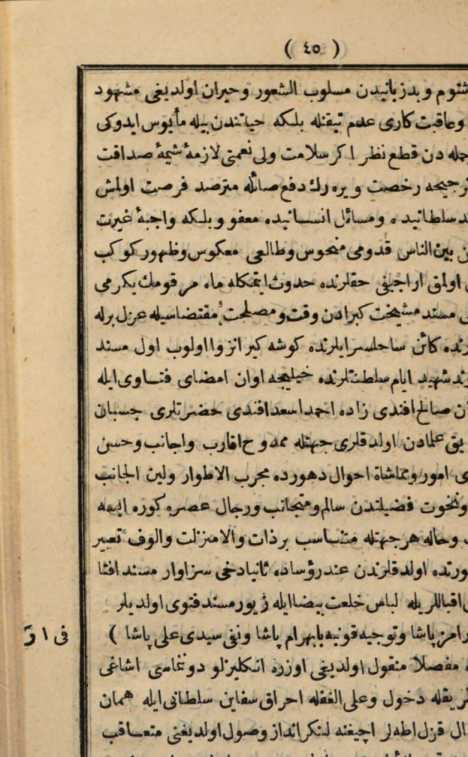 ( ٤٥ )
شئوم و بدزبانیدن مسلوب الشعور وحیران اولدیغی مشهود
وعاقبت کاری عدم تیقنله بلکه حیاتندن بیله مأیوس ایدوکی
جمله دن قطع نظر اکر سلامت ولی نعمتی لازمهٔ شیمهٔ صداقت
رخصت ویره رك دفع صائله مترصد فرصت اولمش
ومسائل انسانیده معفو و بلکه واجبهٔ غیرت
بین الناس قدومی منحوس وطالعی معکوس وظهور کوکب
اولمق اراجیفی حقلرنده حدوث ایتمکله ماه مرقومك یکرمی
مسند مشیخت کبرادن وقت ومصلحت مقتضاسیله عزل برله
کائن ساحلسرایلرنده کوشه کیر انزوا اولوب اول مسند
شهید ایام سلطنتلرنده خیلیجه اوان امضای فتاوی ایله
صالح افندی زاده احمد اسعد افندی حضرتلری حسبان
علمادن اولدقلری جهتله ممدوح اقارب واجانب وحسن
امور ومماشاة احوال دهورده مجرب الاطوار ولین الجانب
ونخوت فضیلتدن سالم ومتجانب ورجال عصره کوره ایسه
وحاله هر جهتله متناسب بر ذات والامنزلت والوف تعبیر
اولدقلرندن عند رؤساده ثانیا دخی سزاوار مسند افتا
اقباللریله لباس خلعت بیضا ایله زیور مسند فتوی اولدیلر
پاشا وتوجیه قونیه بابهرام پاشا ونفی سیدی علی پاشا )
فی ١ ز
مفصلا منقول اولدیغی اوزره انکلیزلو دوننماسی اشاغی
دخول وعلی الغفله احراق سفاین سلطانی ایله همان
قزل اطه لر اچیغنه لنکر انداز وصول اولدیغی متعاقب